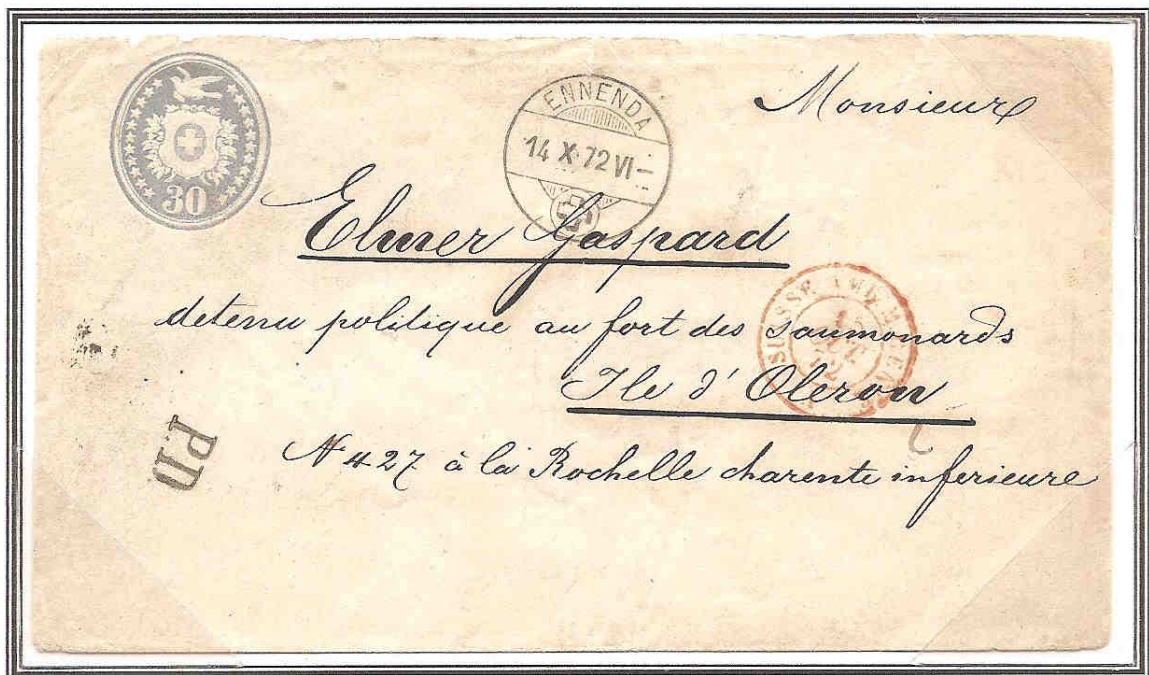 30
ENNENDA
14 X 72 VI –
Monsieur
Elmer Gaspard
detenu politique au fort des saumonards
Ile d'Oleron
N 427 à la Rochelle charente inferieure
SUISSE
PD